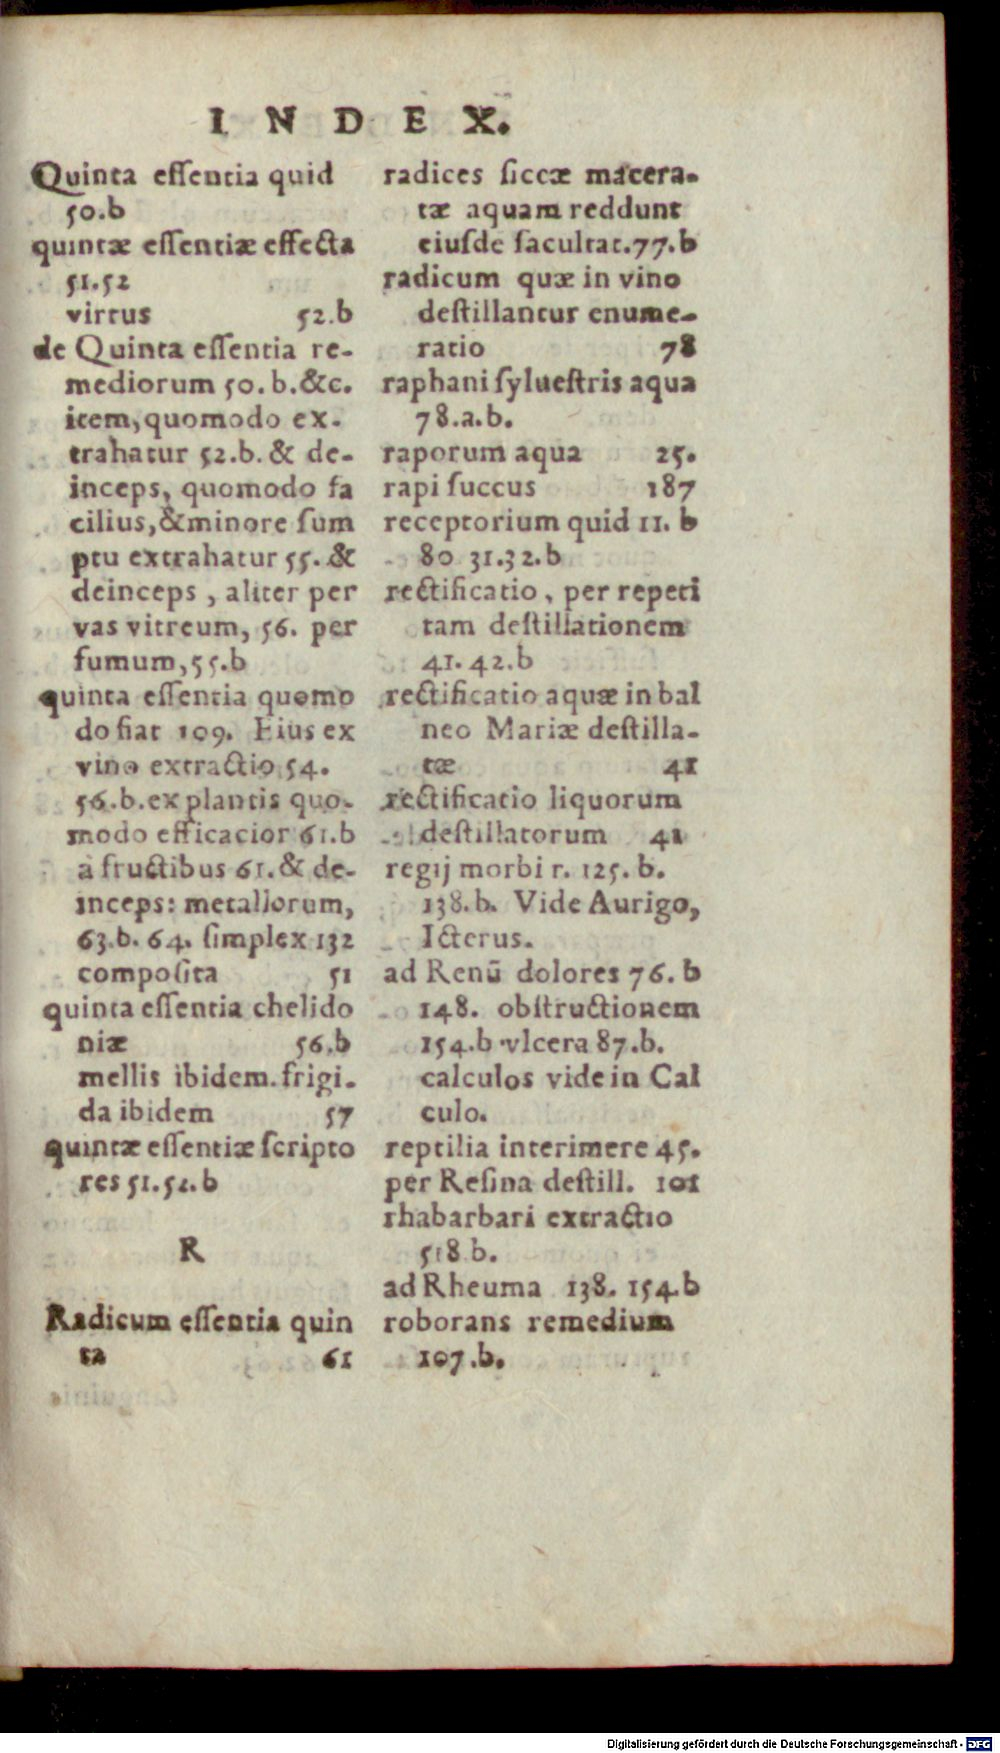 INDEX.
Quinta essentia quid
50.b
quintæ essentiæ effecta
51.52
virtus 52.b
de Quinta essentia re-
mediorum 50.b.&c.
item, quomodo ex-
trahatur 52.b. & de-
inceps, quomodo fa
cilius, & minore sum
ptu extrahatur 55. &
deinceps, aliter per
vas vitreum, 56. per
fumum, 55.b
quinta essentia quomo
do fiat 109. Eius ex
vino extractio 54.
56.b. ex plantis quo-
modo efficacior 61.b
a fructibus 61. & de-
inceps: metallorum,
63.b. 64. simplex 132
composita 51
quinta essentia chelido
niæ 56.b
mellis ibidem. frigi-
da ibidem 57
quintæ essentiæ scripto
res 51.52.b
R
Radicum essentia quin
ta 61
radices siccæ macera-
tæ aquam reddunt
eiusde facultat. 77.b
radicum quæ in vino
destillantur enume-
ratio 78
raphani syluestris aqua
78.a.b.
raporum aqua 25.
rapi succus 187
receptorium quid 11. b
80 31.32.b
rectificatio, per repeti
tam destillationem
41. 42.b
rectificatio aquæ in bal
neo Mariæ destilla-
tæ 41
rectificatio liquorum
destillatorum 41
regij morbi r. 125. b.
138.b. Vide Aurigo,
Icterus.
ad Renū dolores 76. b
148. obstructionem
154.b vlcera 87.b.
calculos vide in Cal
culo.
reptilia interimere 45.
per Resina destill. 101
rhabarbari extractio
518 b.
ad Rheuma 138. 154.b
roborans remedium
107.b.
Digitalisierung gefördert durch die Deutsche Forschungsgemeinschaft - DFG